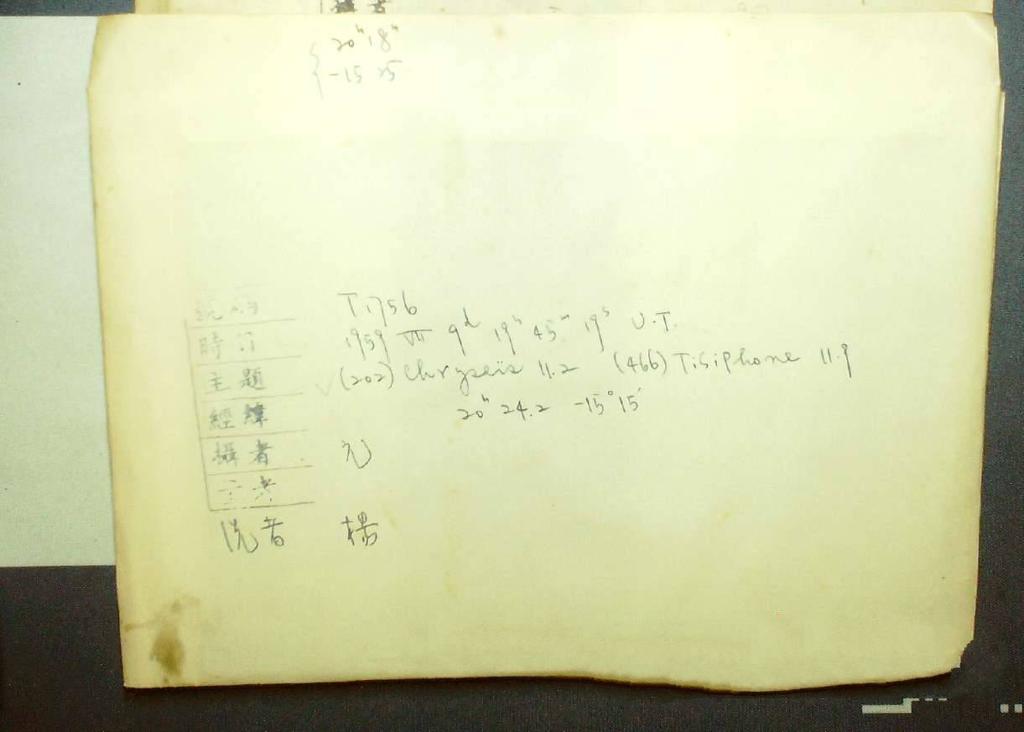 20ʰ 18ᵐ
-15 25
T1756
時 1959 VII 9ᵈ 19ʰ 45ᵐ 19ˢ U.T.
主題 (202) Chryseis 11.2 (466) Tisiphone 11.9
經緯 20ʰ 24.2 -15°15'
攝者 元
洗者 楊